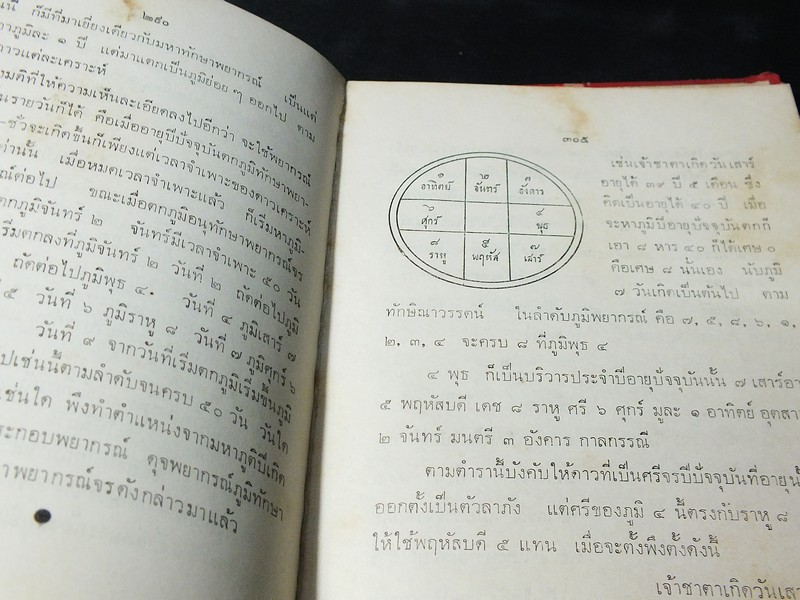 ๒๙๐
ก็มีที่มาเยี่ยงเดียวกับมหาทักษาพยากรณ์ เป็นแต่
ภูมิละ ๑ ปี แต่มาแตกเป็นภูมิย่อย ๆ ออกไป ตาม
ดาวแต่ละเคราะห์
มติที่ให้ความเห็นละเอียดลงไปอีกว่า จะใช้พยากรณ์
รายวันก็ได้ คือเมื่ออายุปีปัจจุบันตกภูมิทักษาพยา-
-ชั่วจะเกิดขึ้นก็เพียงแต่เวลาจำเพาะของดาวเคราะห์
เท่านั้น เมื่อหมดเวลาจำเพาะแล้ว ก็เริ่มหาภูมิ-
ต่อไป ขณะเมื่อตกภูมิอนุทักษาพยากรณ์จร
ตกภูมิจันทร์ ๒ จันทร์มีเวลาจำเพาะ ๕๐ วัน
เริ่มตกลงที่ภูมิจันทร์ ๒ วันที่ ๒ ถัดต่อไปภูมิ
ถัดต่อไปภูมิพุธ ๔ วันที่ ๔ ภูมิเสาร์ ๗
๕ วันที่ ๖ ภูมิราหู ๘ วันที่ ๗ ภูมิศุกร์ ๖
วันที่ ๙ จากวันที่เริ่มตกภูมิเริ่มขึ้นภูมิ
ไปเช่นนี้ตามลำดับจนครบ ๕๐ วัน วันใด
เช่นใด พึงทำตำแหน่งจากมหาภูติปีเกิด
ประกอบพยากรณ์ ดุจพยากรณ์ภูมิทักษา
พยากรณ์จรดังกล่าวมาแล้ว
๓๐๕
๑ ๒ ๓
อาทิตย์ จันทร์ อังคาร
๖ ๔
ศุกร์ พุธ
๘ ๕ ๗
ราหู พฤหัส เสาร์
เช่นเจ้าชาตาเกิดวันเสาร์
อายุได้ ๓๙ ปี ๕ เดือน ซึ่ง
คิดเป็นอายุได้ ๔๐ ปี เมื่อ
จะหาภูมิปีอายุปัจจุบันตกก็
เอา ๘ หาร ๔๐ ก็ได้เศษ ๐
คือเศษ ๘ นั่นเอง นับภูมิ
๗ วันเกิดเป็นต้นไป ตาม
ทักษิณาวรรตน์ ในลำดับภูมิพยากรณ์ คือ ๗, ๕, ๘, ๖, ๑,
๒, ๓, ๔ จะครบ ๘ ที่ภูมิพุธ ๔
๔ พุธ ก็เป็นบริวารประจำปีอายุปัจจุบันนั้น ๗ เสาร์อา
๕ พฤหัสบดี เดช ๘ ราหู ศรี ๖ ศุกร์ มูละ ๑ อาทิตย์ อุตสา
๒ จันทร์ มนตรี ๓ อังคาร กาลกรรณี
ตามตำรานี้บังคับให้ดาวที่เป็นศรีจรปีปัจจุบันที่อายุนั้
ออกตั้งเป็นตัวลาภัง แต่ศรีของภูมิ ๔ นี้ตรงกับราหู ๘
ให้ใช้พฤหัสบดี ๕ แทน เมื่อจะตั้งพึงตั้งดังนี้
เจ้าชาตาเกิดวันเสา